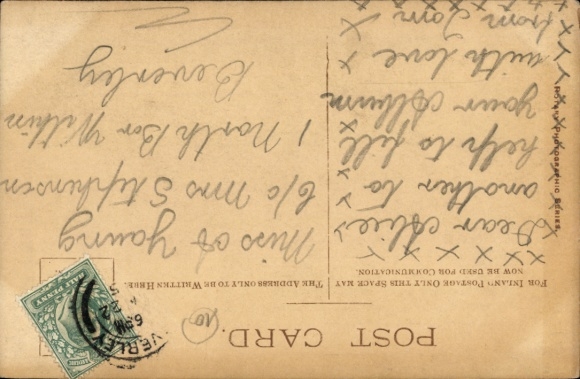 POST CARD.
FOR INLAND POSTAGE ONLY THIS SPACE MAY
NOW BE USED FOR COMMUNICATION.
THE ADDRESS ONLY TO BE WRITTEN HERE.
Dear Alice
another to
help to fill
your Album
with love
from Tom
Miss A Young
C/o Mrs Stephenson
1 North Bar Within
Beverley
ROTARY PHOTOGRAPHIC SERIES.
HALF PENNY
VERLEY
6 PM